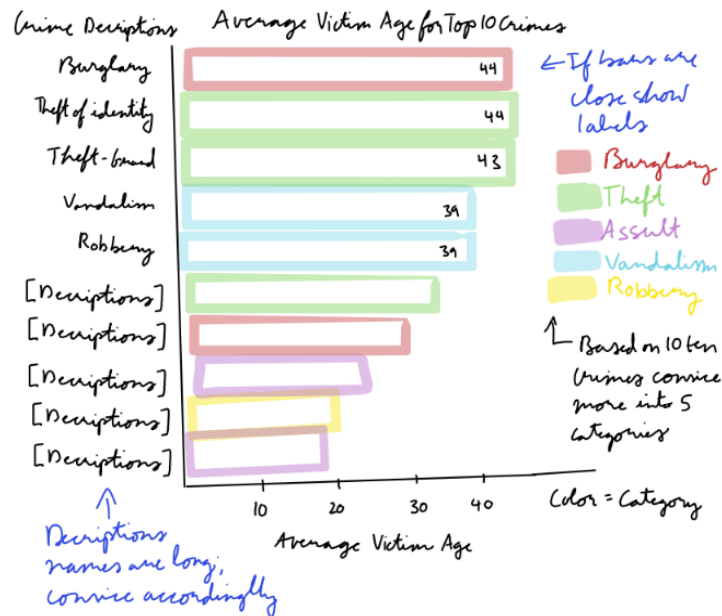 Crime Decriptions
Average Victim Age for Top 10 Crimes
Burglary
44
Theft of identity
44
Theft-
43
Vandalism
39
Robbery
39
[Decriptions]
[Decriptions]
[Decriptions]
[Decriptions]
[Decriptions]
10 20 30 40
Average Victim Age
← If bars are
close show
labels
Burglary
Theft
Assult
Vandalism
Robbery
Based on 10 ten
Crimes convice
more into 5
categories
Color = Category
Decriptions
names are long;
convice accordingly